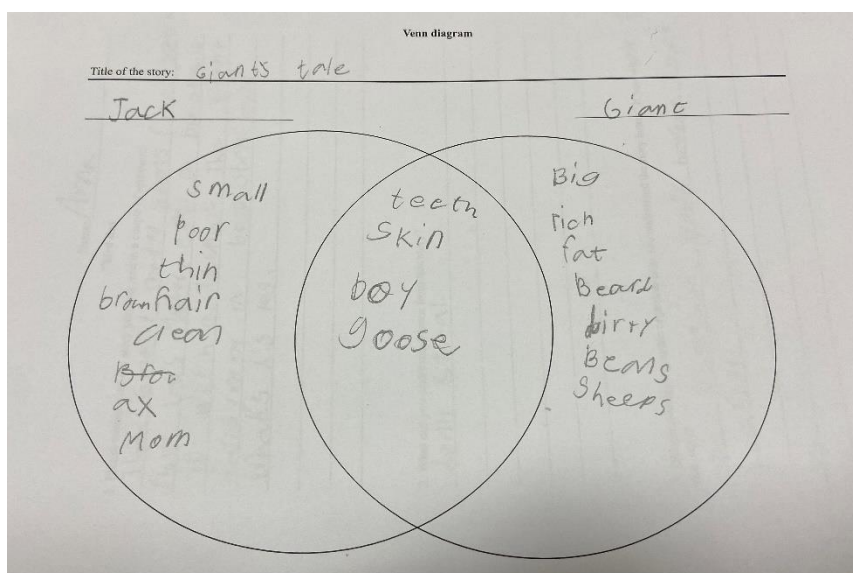 Venn diagram
Title of the story: Giants tale
Jack
Giant
small
poor
thin
brown hair
clean
ax
Mom
teeth
skin
boy
goose
Big
rich
fat
Beard
dirty
Beans
Sheeps